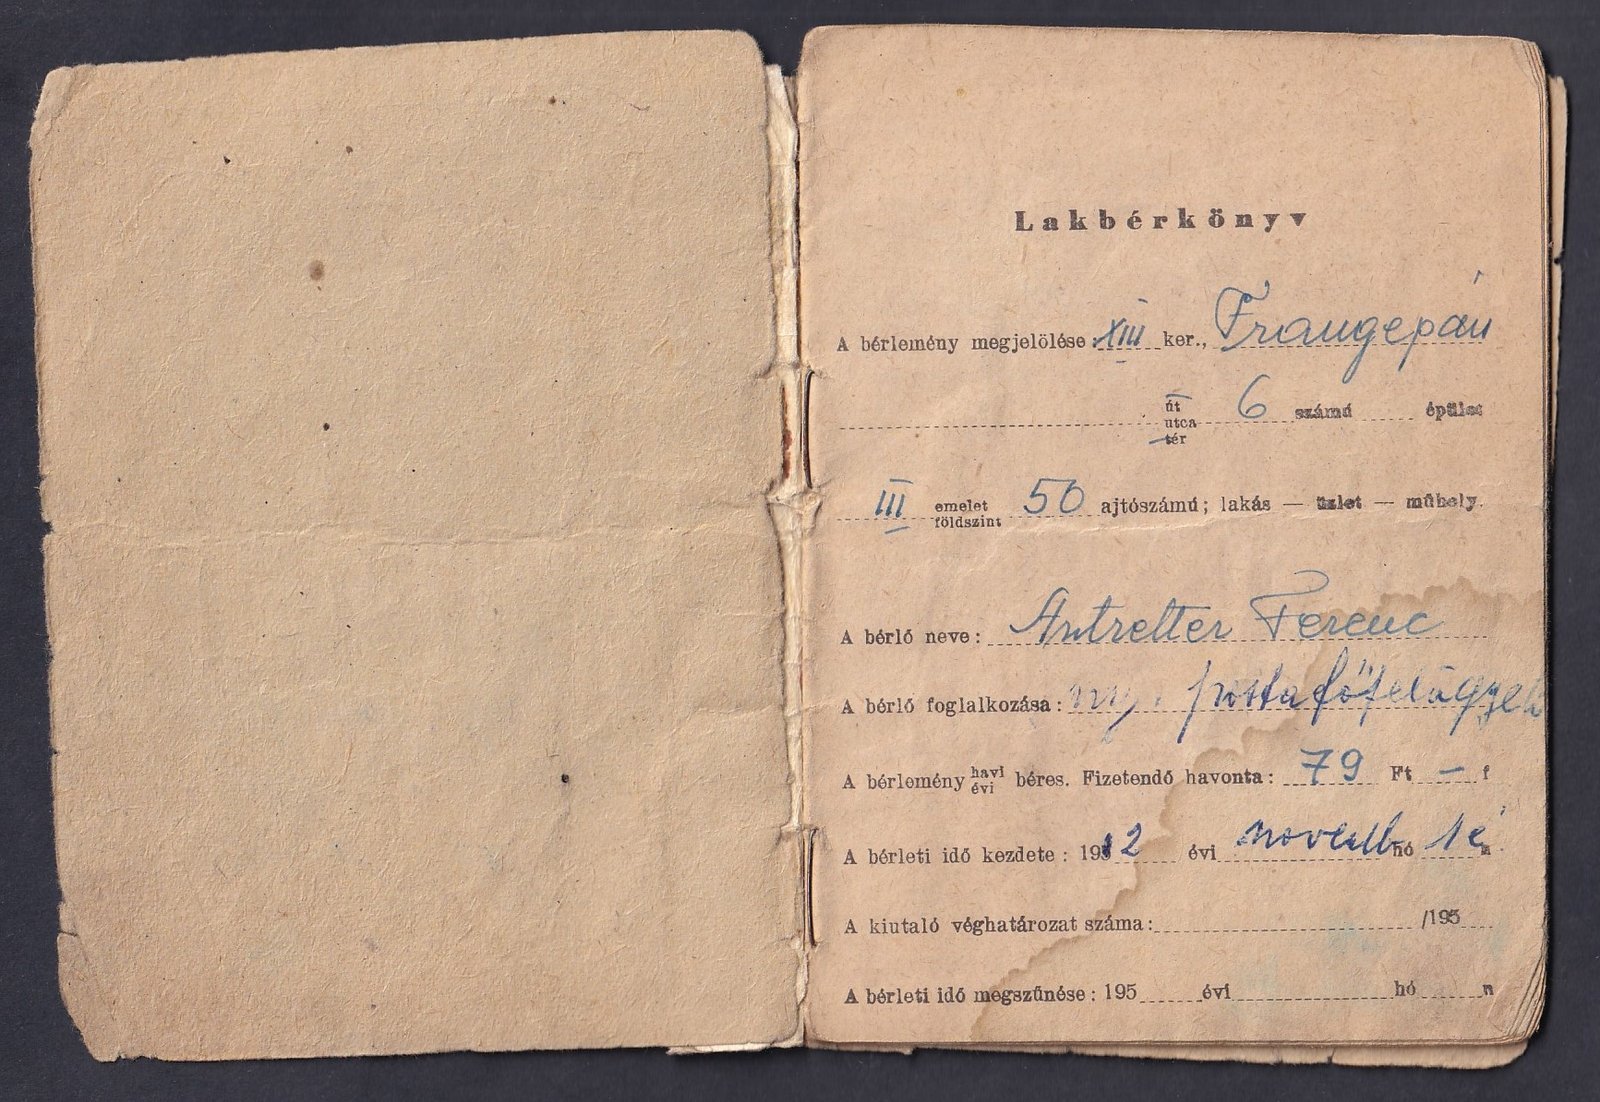 Lakbérkönyv
A bérlemény megjelölése XIII ker., Frangepán
út
utca 6 számú épület
tér
III emelet 50 ajtószámú; lakás — üzlet — műhely.
földszint
A bérlő neve: Antretter Ferenc
A bérlő foglalkozása: ny. postafőfelügyelő
A bérlemény havi béres. Fizetendő havonta: 79 Ft — f
évi
A bérleti idő kezdete: 1912 évi novemb hó 1é n
A kiutaló véghatározat száma: /195
A bérleti idő megszűnése: 195 évi hó n